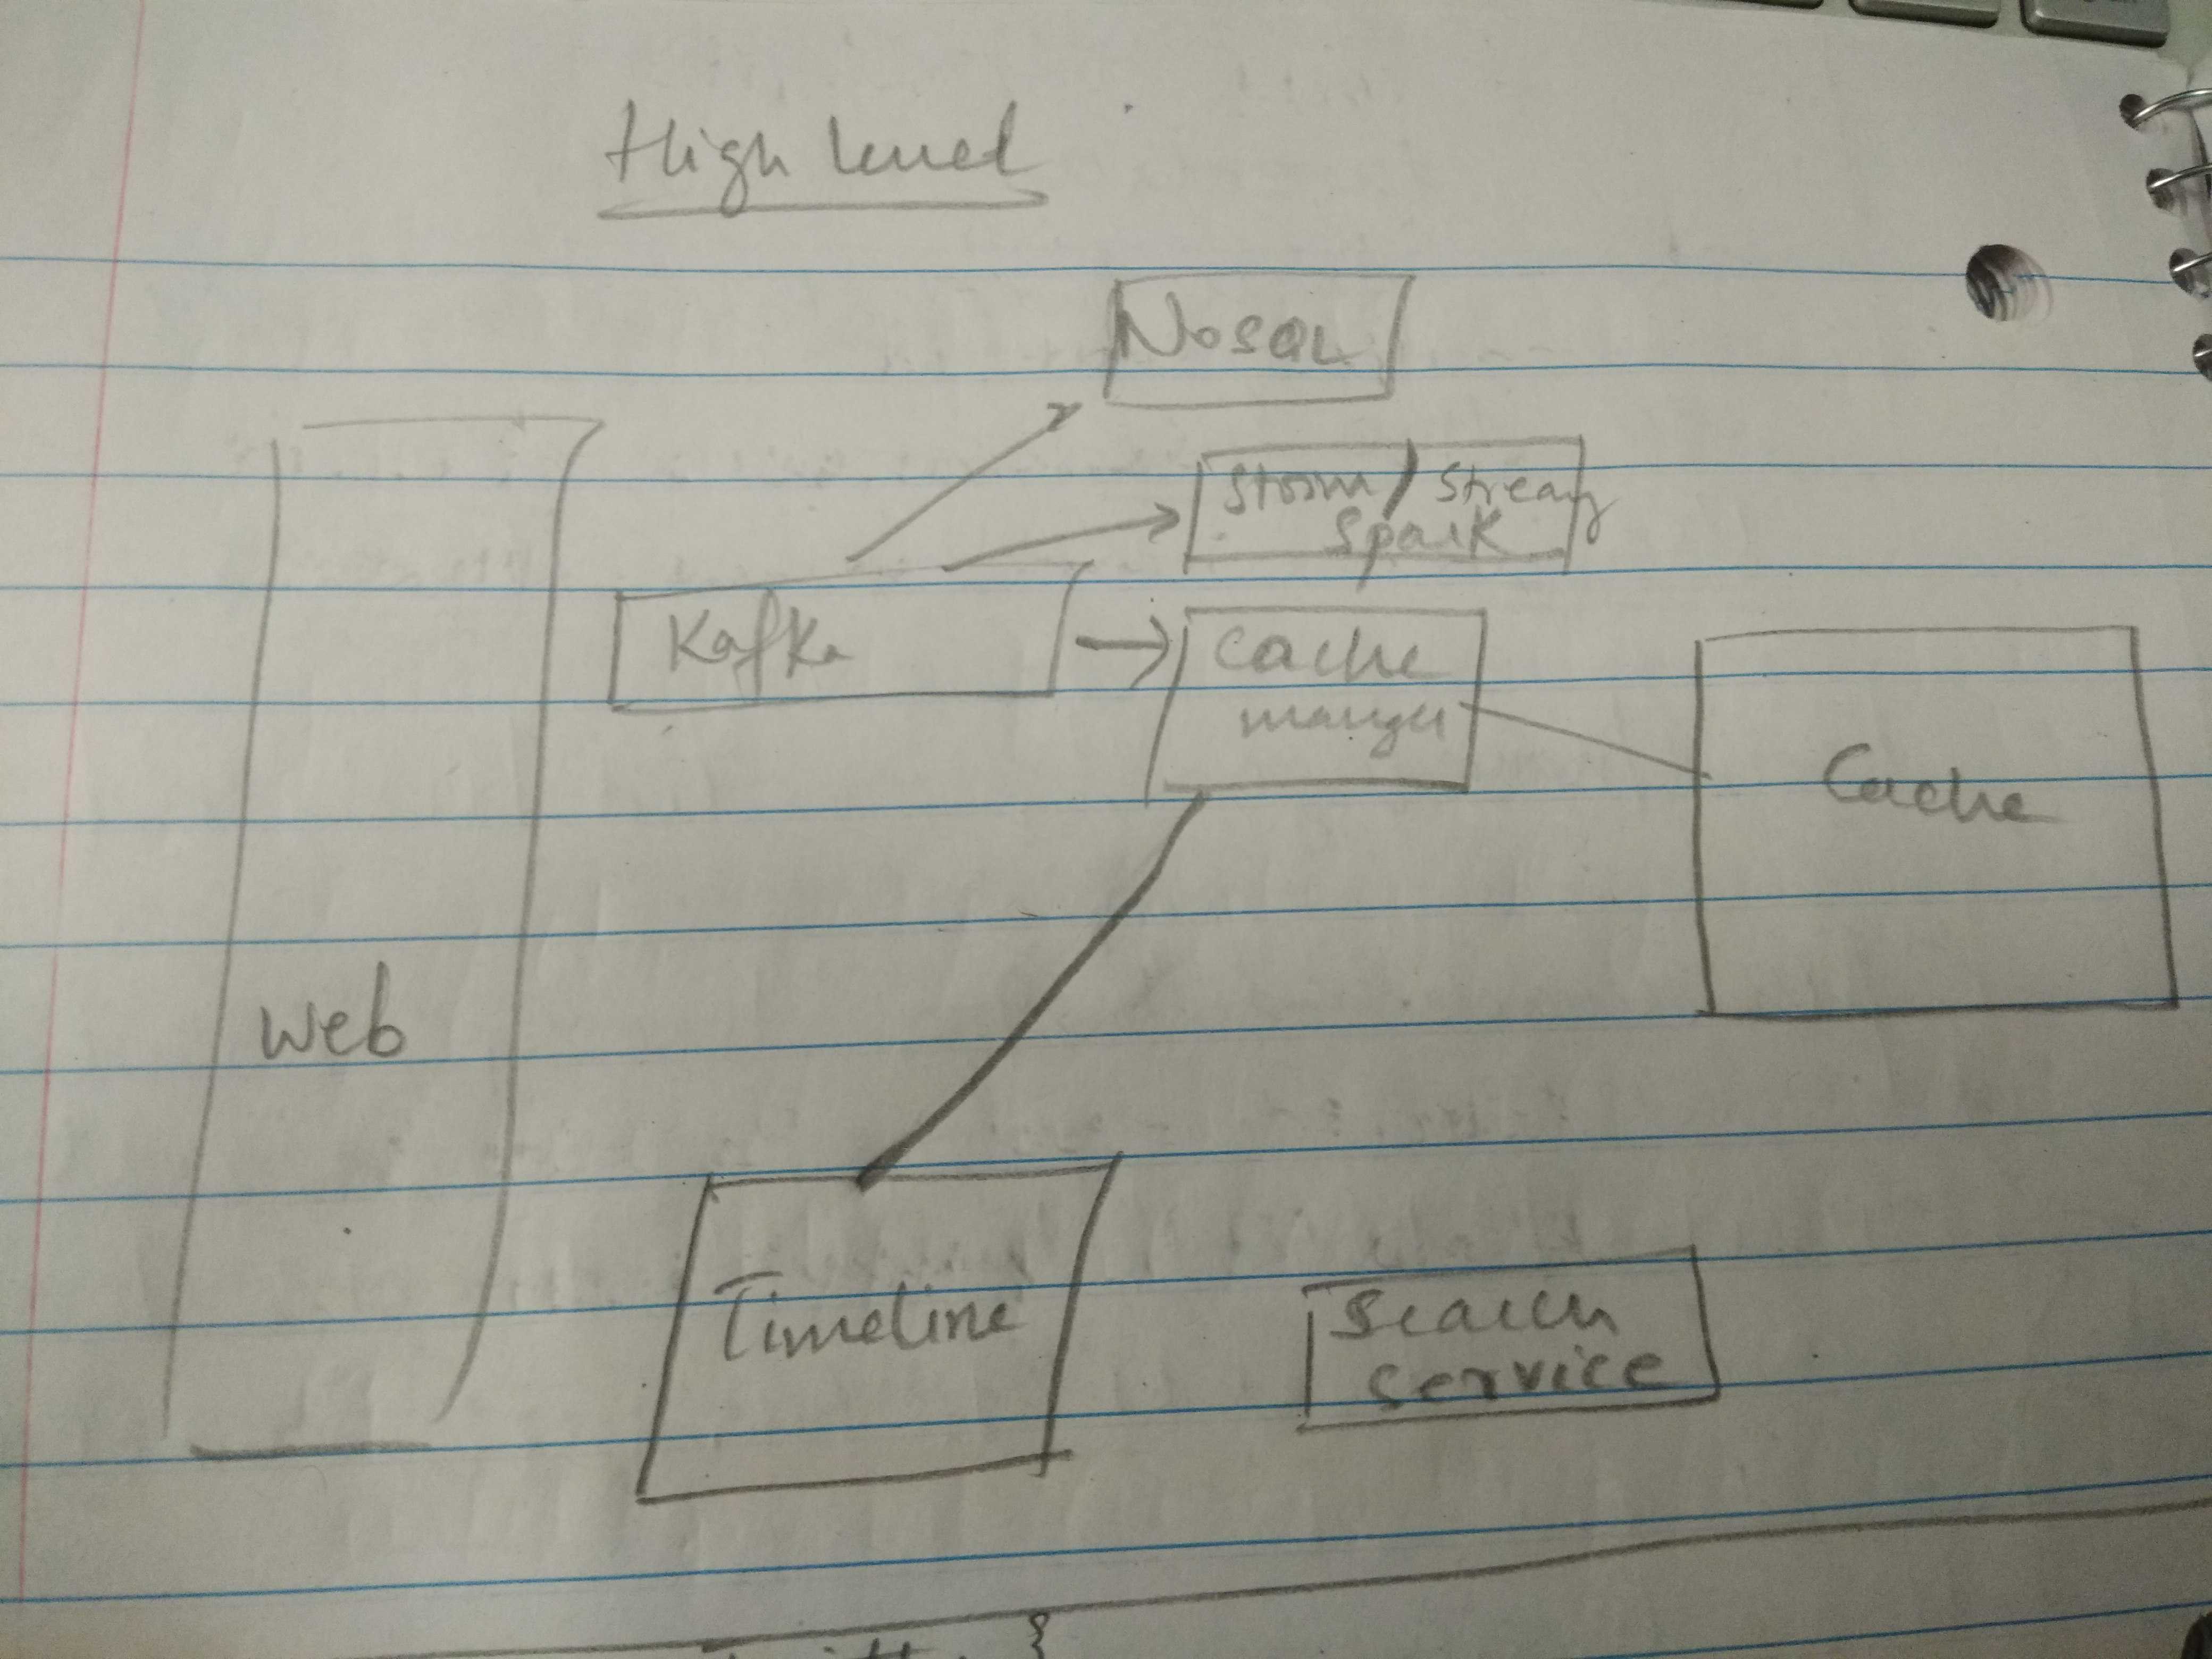 High level
NoSQL
Storm / Stream
Spark
Kafka
Cache
manager
Cache
Web
Timeline
Search
service
{